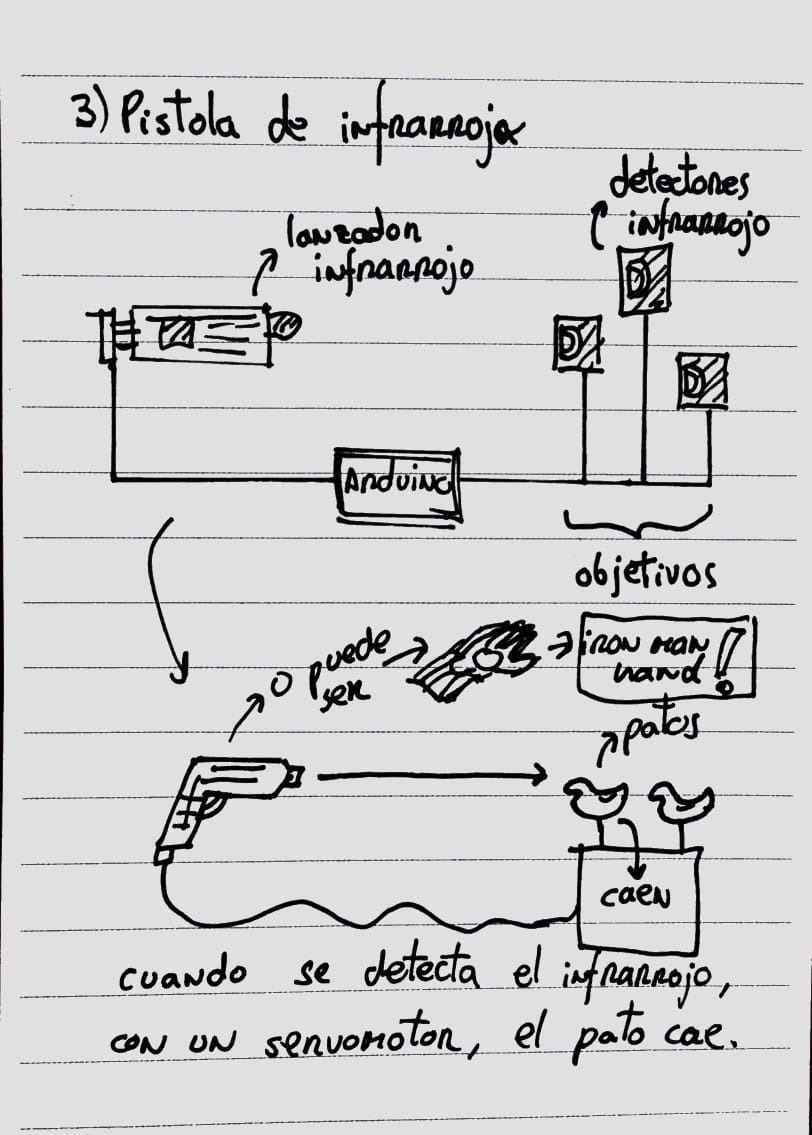 3) Pistola de infrarroja
detectores
infrarrojo
lanzador
infrarrojo
Arduino
objetivos
o puede
ser
iron man
hand!
patos
caen
cuando se detecta el infrarrojo,
con un servomotor, el pato cae.